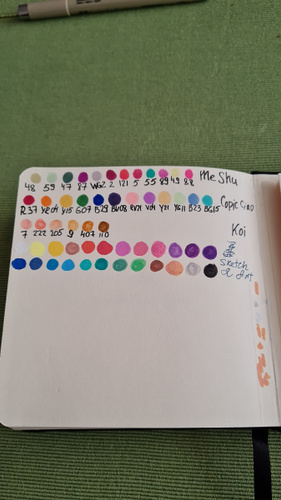 48 59 47 87 WG2 2 121 5 55 89 49 88 MeShu
R37 YR04 Y15 G07 B29 BV08 RV21 V04 Y21 YG11 B23 BG15 Copic Ciao
7 222 205 9 407 110 Koi
Sketch
& Art